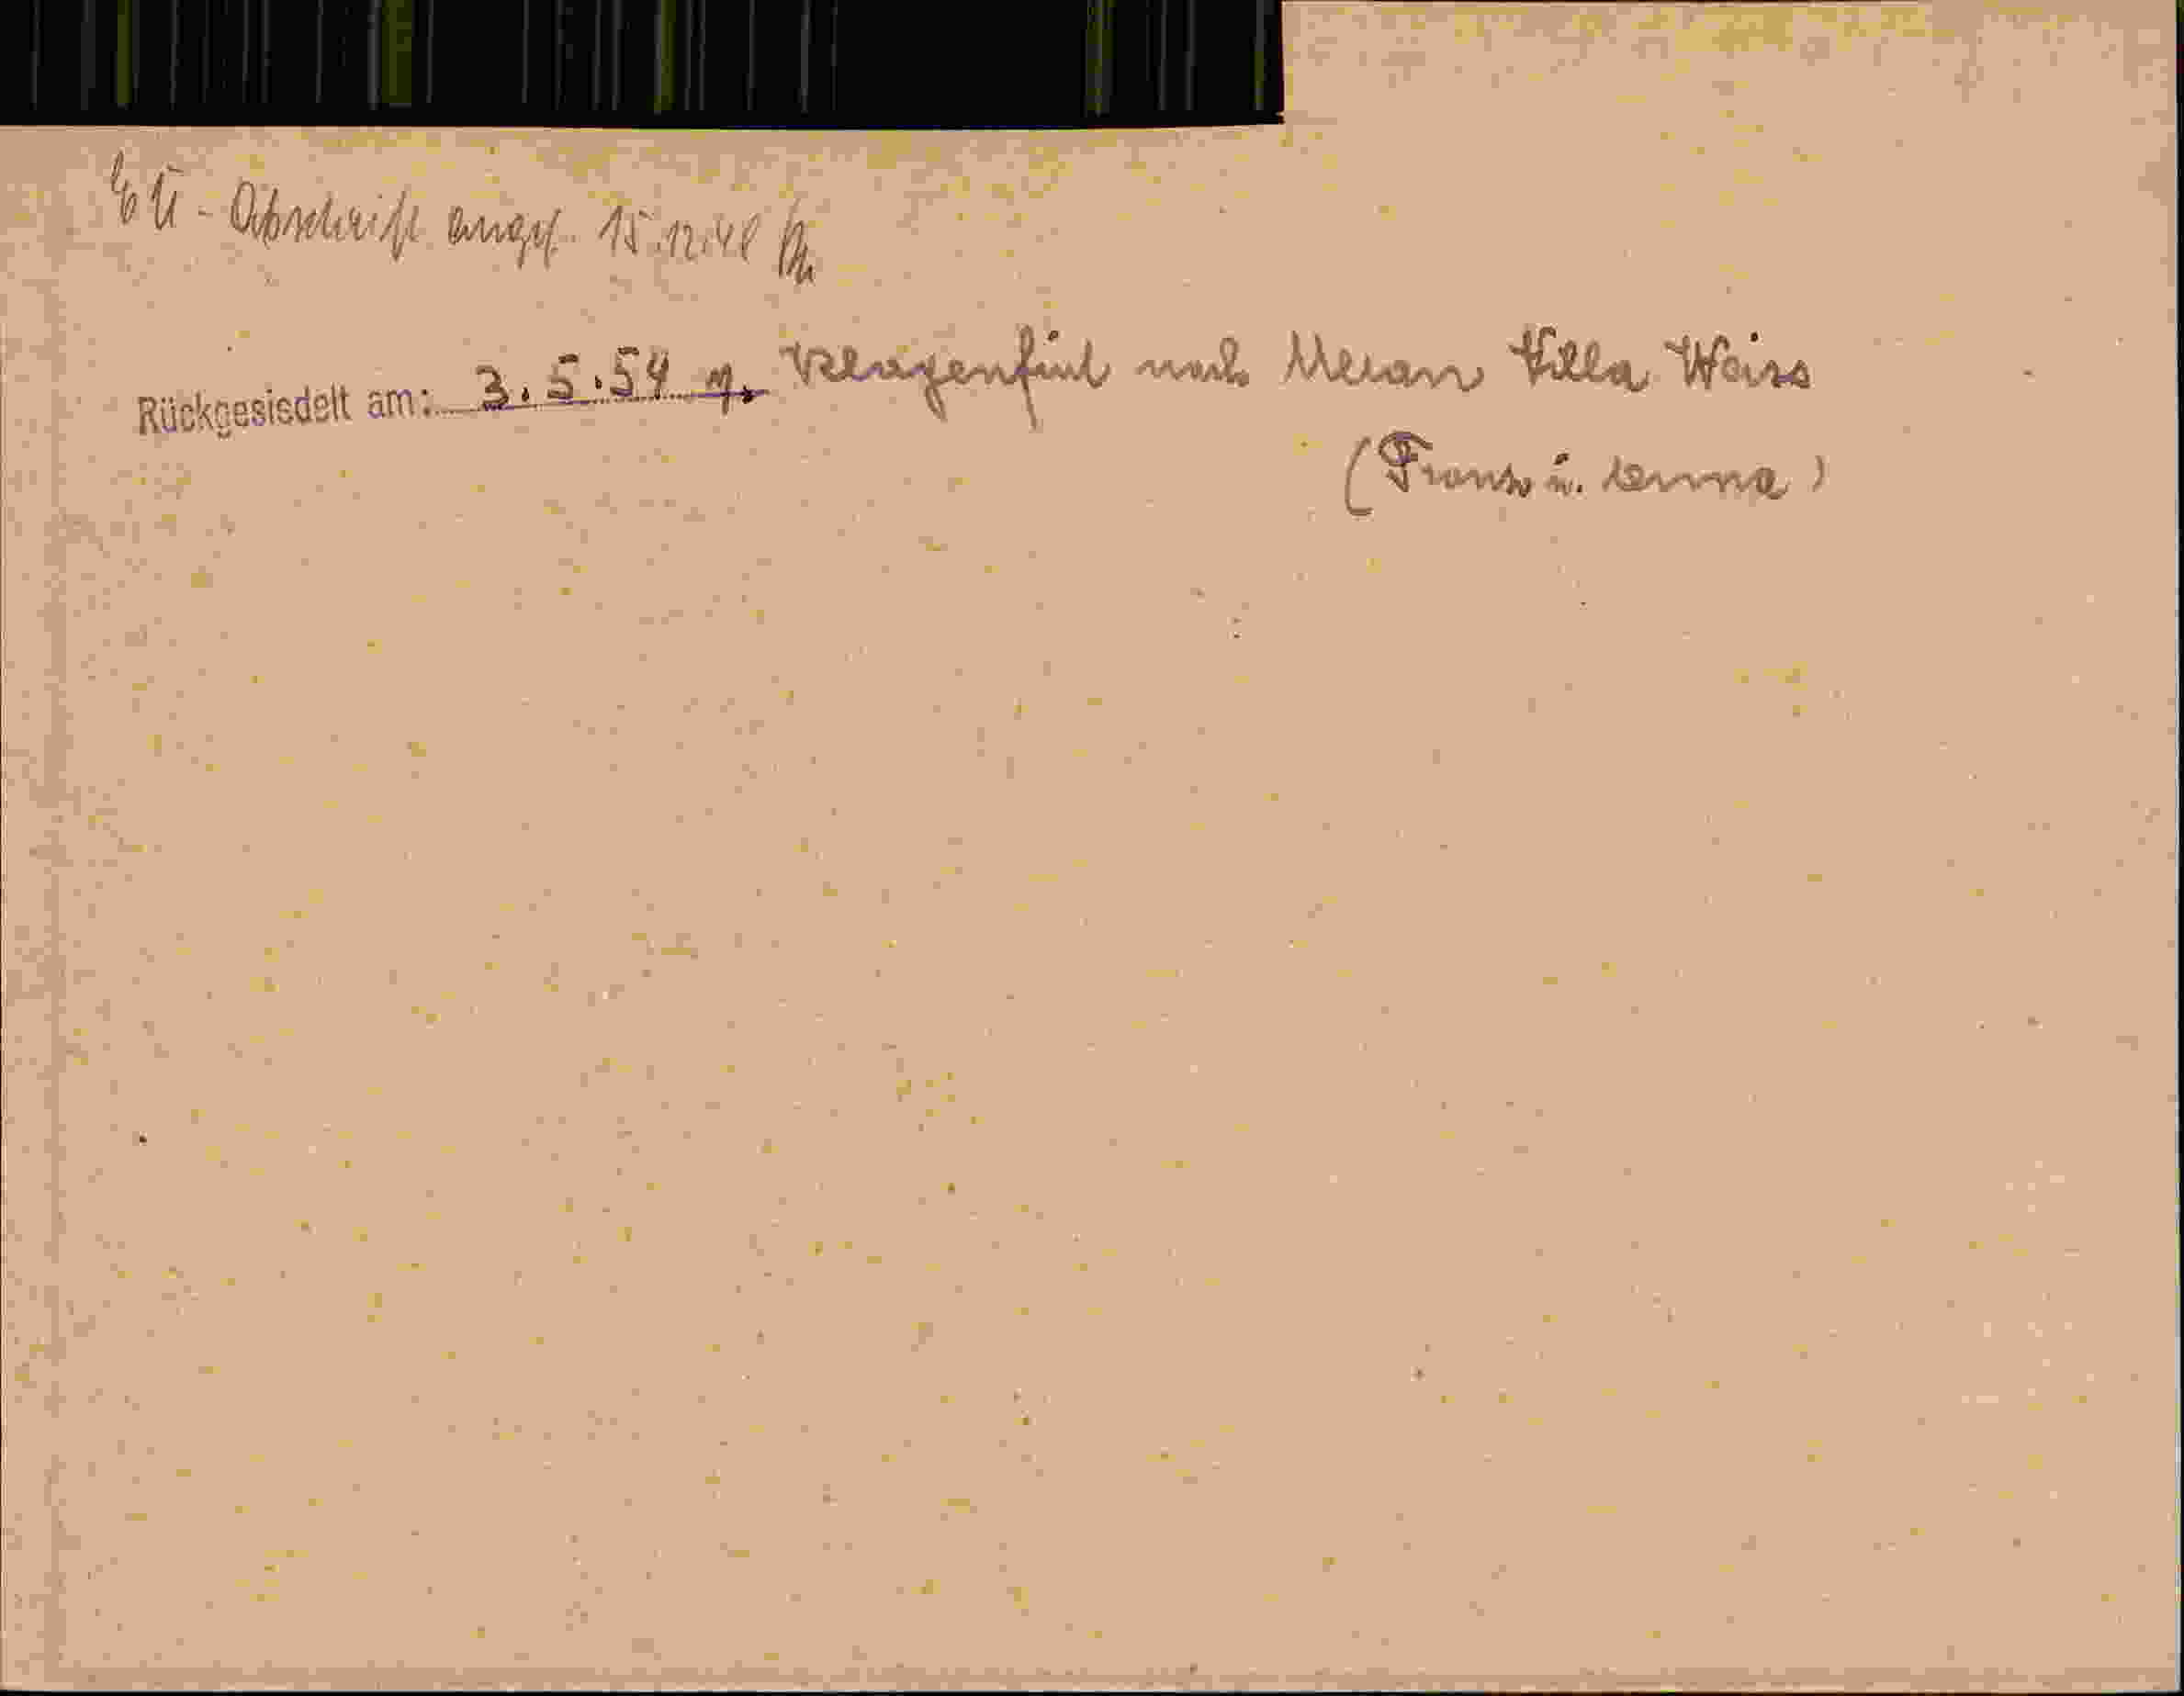 EU - Abschrift angef. 15.12.48
Rückgesiedelt am: 3.5.54 v. Klagenfurt nach Meran Villa Weiss
(Franz u. Anna)